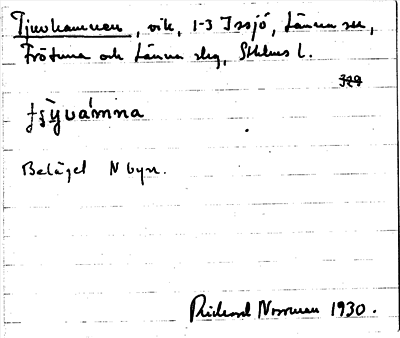 Tjuvhamnen, vik, 1-3 Issjö, Länna sn,
Frötuna och Länna slg, Sthlms l.
Beläget N byn.
Rickard Norrman 1930.